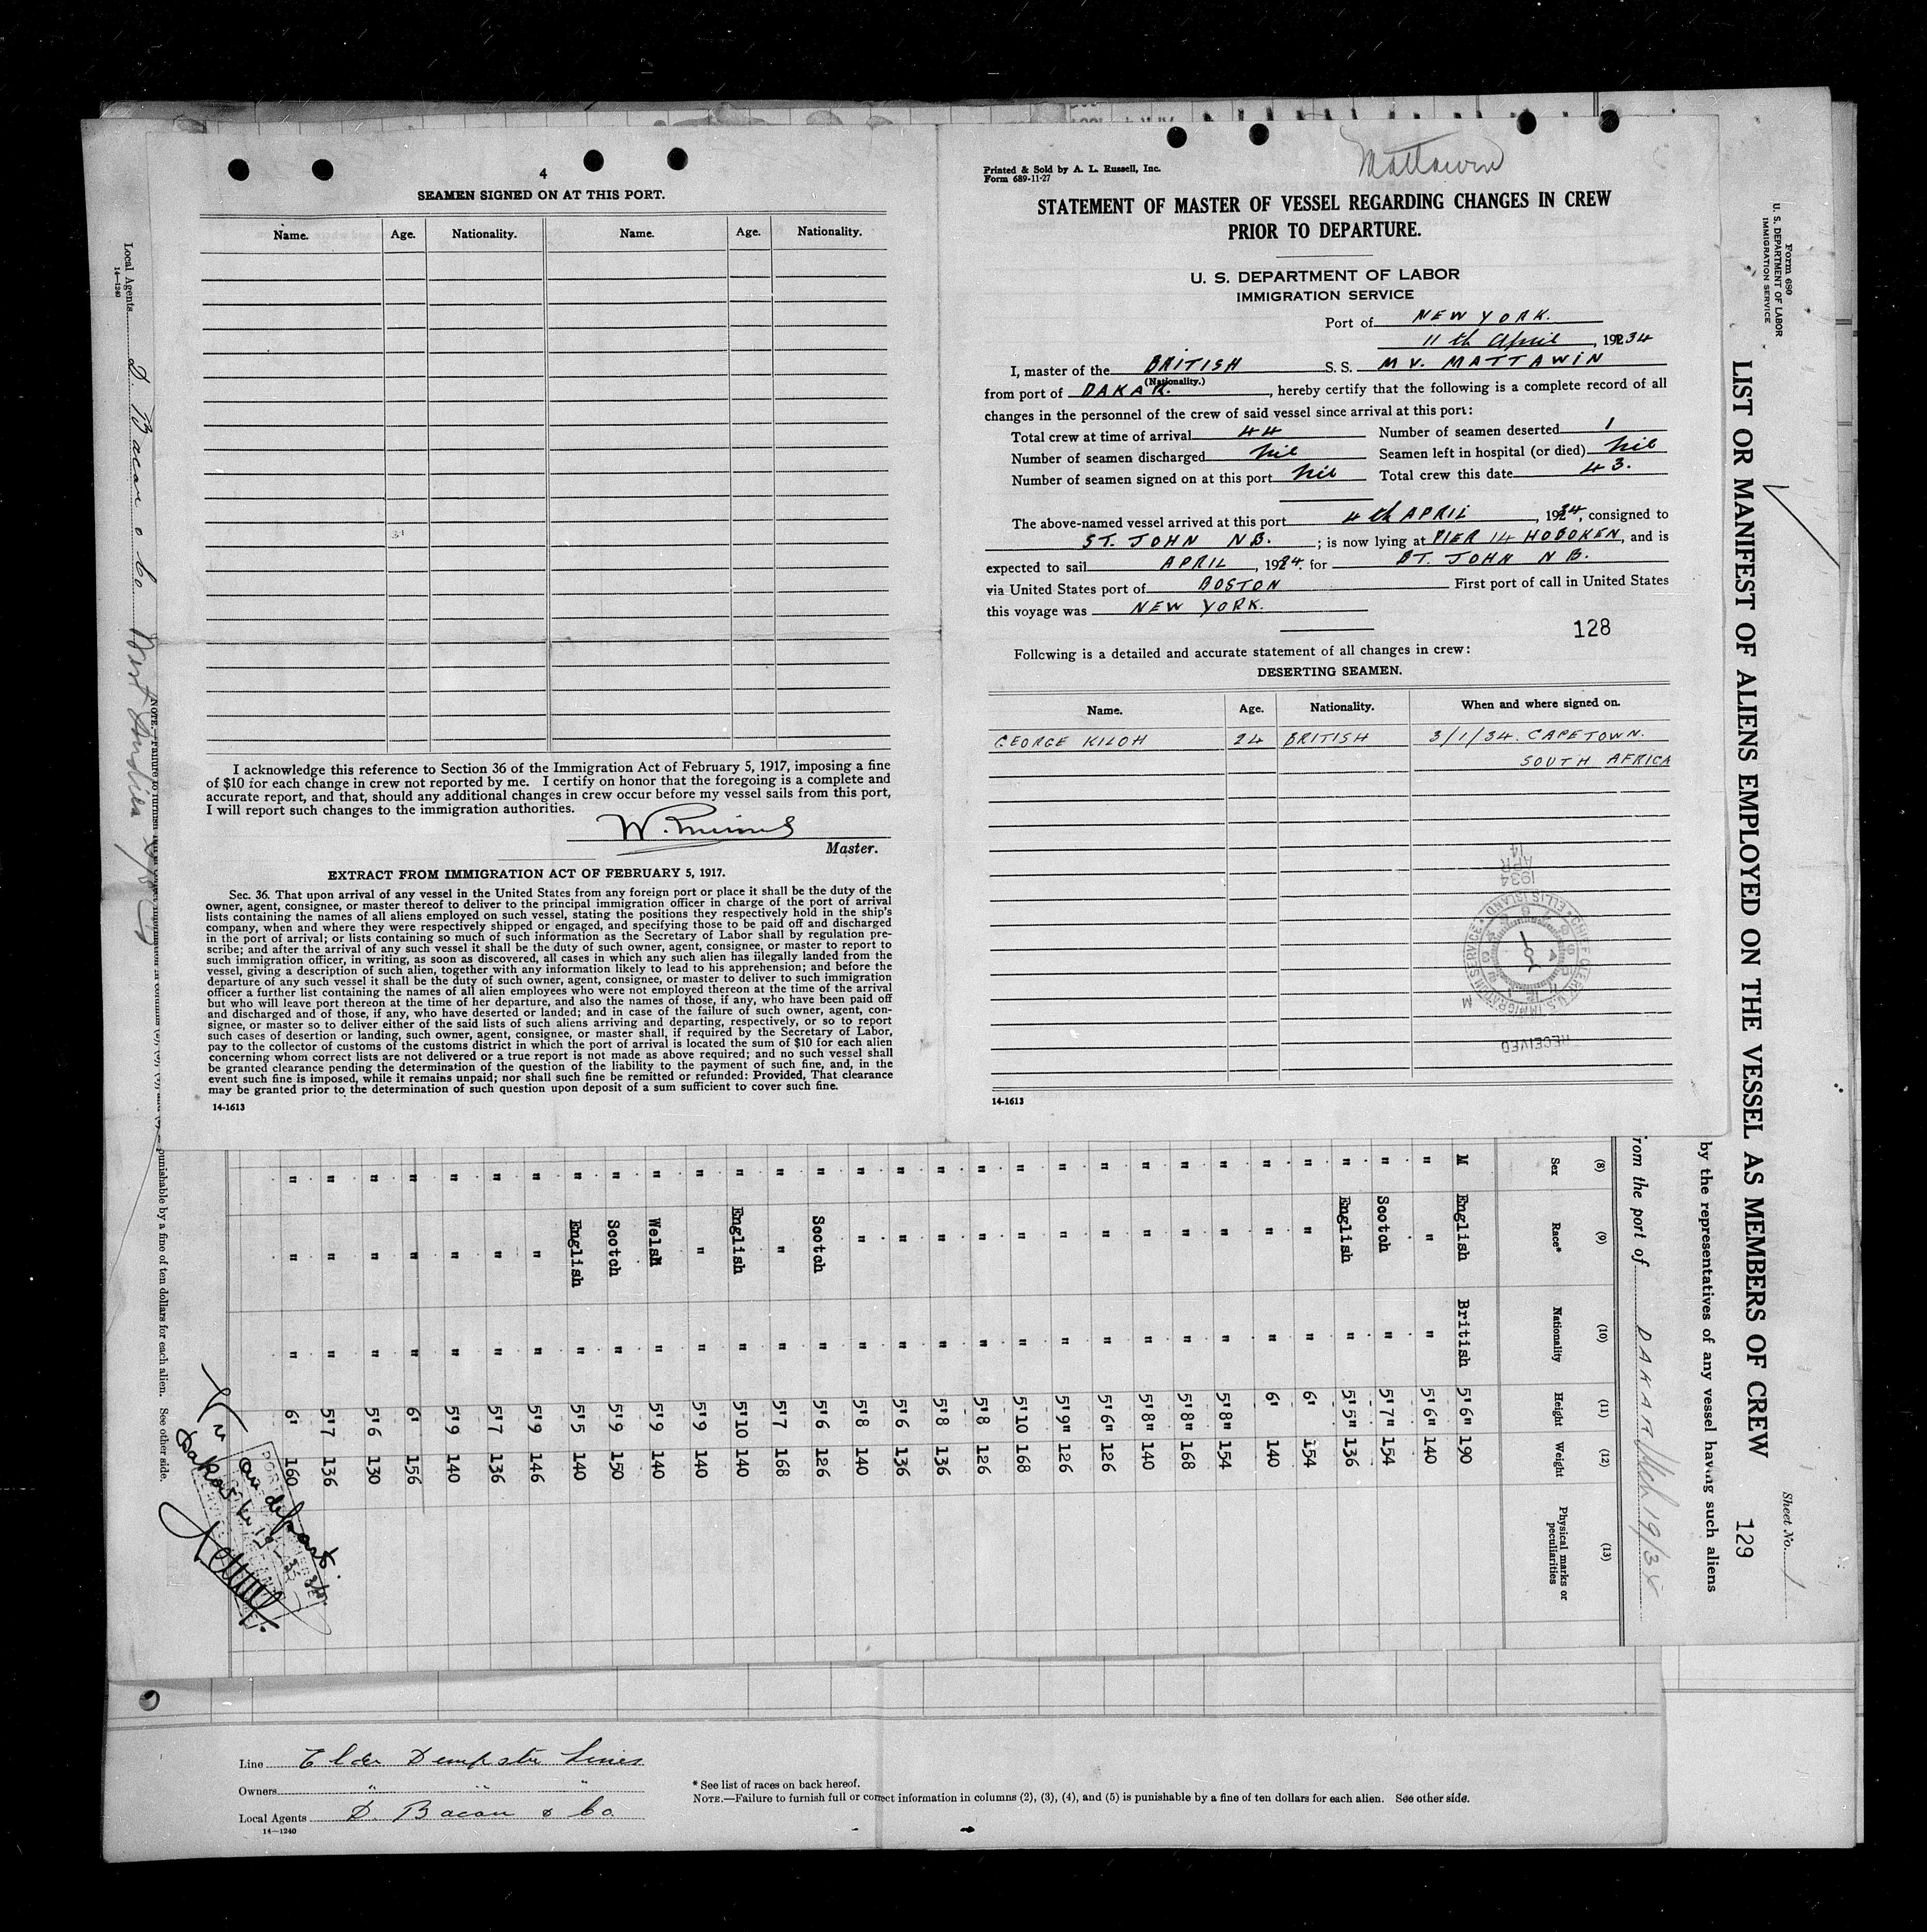 4
SEAMEN SIGNED ON AT THIS PORT.
Name. Age. Nationality. Name. Age. Nationality.
I acknowledge this reference to Section 36 of the Immigration Act of February 5, 1917, imposing a fine
of $10 for each change in crew not reported by me. I certify on honor that the foregoing is a complete and
accurate report, and that, should any additional changes in crew occur before my vessel sails from this port,
I will report such changes to the immigration authorities.
Master.
EXTRACT FROM IMMIGRATION ACT OF FEBRUARY 5, 1917.
Sec. 36. That upon arrival of any vessel in the United States from any foreign port or place it shall be the duty of the
owner, agent, consignee, or master thereof to deliver to the principal immigration officer in charge of the port of arrival
lists containing the names of all aliens employed on such vessel, stating the positions they respectively hold in the ship's
company, when and where they were respectively shipped or engaged, and specifying those to be paid off and discharged
in the port of arrival; or lists containing so much of such information as the Secretary of Labor shall by regulation pre-
scribe; and after the arrival of any such vessel it shall be the duty of such owner, agent, consignee, or master to report to
such immigration officer, in writing, as soon as discovered, all cases in which any such alien has illegally landed from the
vessel, giving a description of such alien, together with any information likely to lead to his apprehension; and before the
departure of any such vessel it shall be the duty of such owner, agent, consignee, or master to deliver to such immigration
officer a further list containing the names of all alien employees who were not employed thereon at the time of the arrival
but who will leave port thereon at the time of her departure, and also the names of those, if any, who have been paid off
and discharged and of those, if any, who have deserted or landed; and in case of the failure of such owner, agent, con-
signee, or master so to deliver either of the said lists of such aliens arriving and departing, respectively, or so to report
such cases of desertion or landing, such owner, agent, consignee, or master shall, if required by the Secretary of Labor,
pay to the collector of customs of the customs district in which the port of arrival is located the sum of $10 for each alien
concerning whom correct lists are not delivered or a true report is not made as above required; and no such vessel shall
be granted clearance pending the determination of the question of the liability to the payment of such fine, and, in the
event such fine is imposed, while it remains unpaid; nor shall such fine be remitted or refunded: Provided, That clearance
may be granted prior to the determination of such question upon deposit of a sum sufficient to cover such fine.
14-1613
Mattawin
Printed & Sold by A. L. Russell, Inc.
Form 689-11-27
STATEMENT OF MASTER OF VESSEL REGARDING CHANGES IN CREW
PRIOR TO DEPARTURE.
U. S. DEPARTMENT OF LABOR
IMMIGRATION SERVICE
Port of NEW YORK.
11th April, 1934
I, master of the BRITISH S. S. M V. MATTAWIN
(Nationality.)
from port of DAKAR., hereby certify that the following is a complete record of all
changes in the personnel of the crew of said vessel since arrival at this port:
Total crew at time of arrival 44 Number of seamen deserted 1
Number of seamen discharged Nil Seamen left in hospital (or died) Nil
Number of seamen signed on at this port Nil Total crew this date 43.
The above-named vessel arrived at this port 4th APRIL, 1934, consigned to
ST. JOHN NB.; is now lying at PIER 14 HOBOKEN, and is
expected to sail APRIL, 1934. for ST. JOHN NB.
via United States port of BOSTON First port of call in United States
this voyage was NEW YORK.
128
Following is a detailed and accurate statement of all changes in crew:
DESERTING SEAMEN.
Name. Age. Nationality. When and where signed on.
GEORGE KILOH 24 BRITISH 3/1/34. CAPETOWN.
SOUTH AFRICA
RECEIVED
1934 APR 14
14-1613
Form 680
U. S. DEPARTMENT OF LABOR
IMMIGRATION SERVICE
LIST OR MANIFEST OF ALIENS EMPLOYED ON THE VESSEL AS MEMBERS OF CREW
129
Sheet No. 1
by the representatives of any vessel having such aliens
from the port of DAKAR
(8) (9) (10) (11) (12) (13)
Sex Race* Nationality Height Weight Physical marks or peculiarities
M English British 5'6" 190
" " " 5'6" 140
" Scotch " 5'7" 154
" English " 5'5" 136
" " " 6' 154
" " " 6' 140
" " " 5'8" 154
" " " 5'8" 168
" " " 5'8" 140
" " " 5'6" 126
" " " 5'9" 126
" " " 5'10 168
" " " 5'8 126
" " " 5'8 136
" " " 5'6 136
" " " 5'8 140
" Scotch " 5'6 126
" " " 5'7 168
" English " 5'10 140
" " " 5'9 140
" Welsh " 5'9 140
" Scotch " 5'9 150
" English " 5'5 140
" " " 5'9 146
" " " 5'7 136
" " " 5'9 140
" " " 6' 156
" " " 5'6 130
" " " 5'7 136
" " " 6' 160
Local Agents D. Bacon & Co.
14-1240
punishable by a fine of ten dollars for each alien. See other side.
Line Elder Dempster Lines
Owners " " "
Local Agents D. Bacon & Co
14-1240
* See list of races on back hereof.
NOTE.—Failure to furnish full or correct information in columns (2), (3), (4), and (5) is punishable by a fine of ten dollars for each alien. See other side.